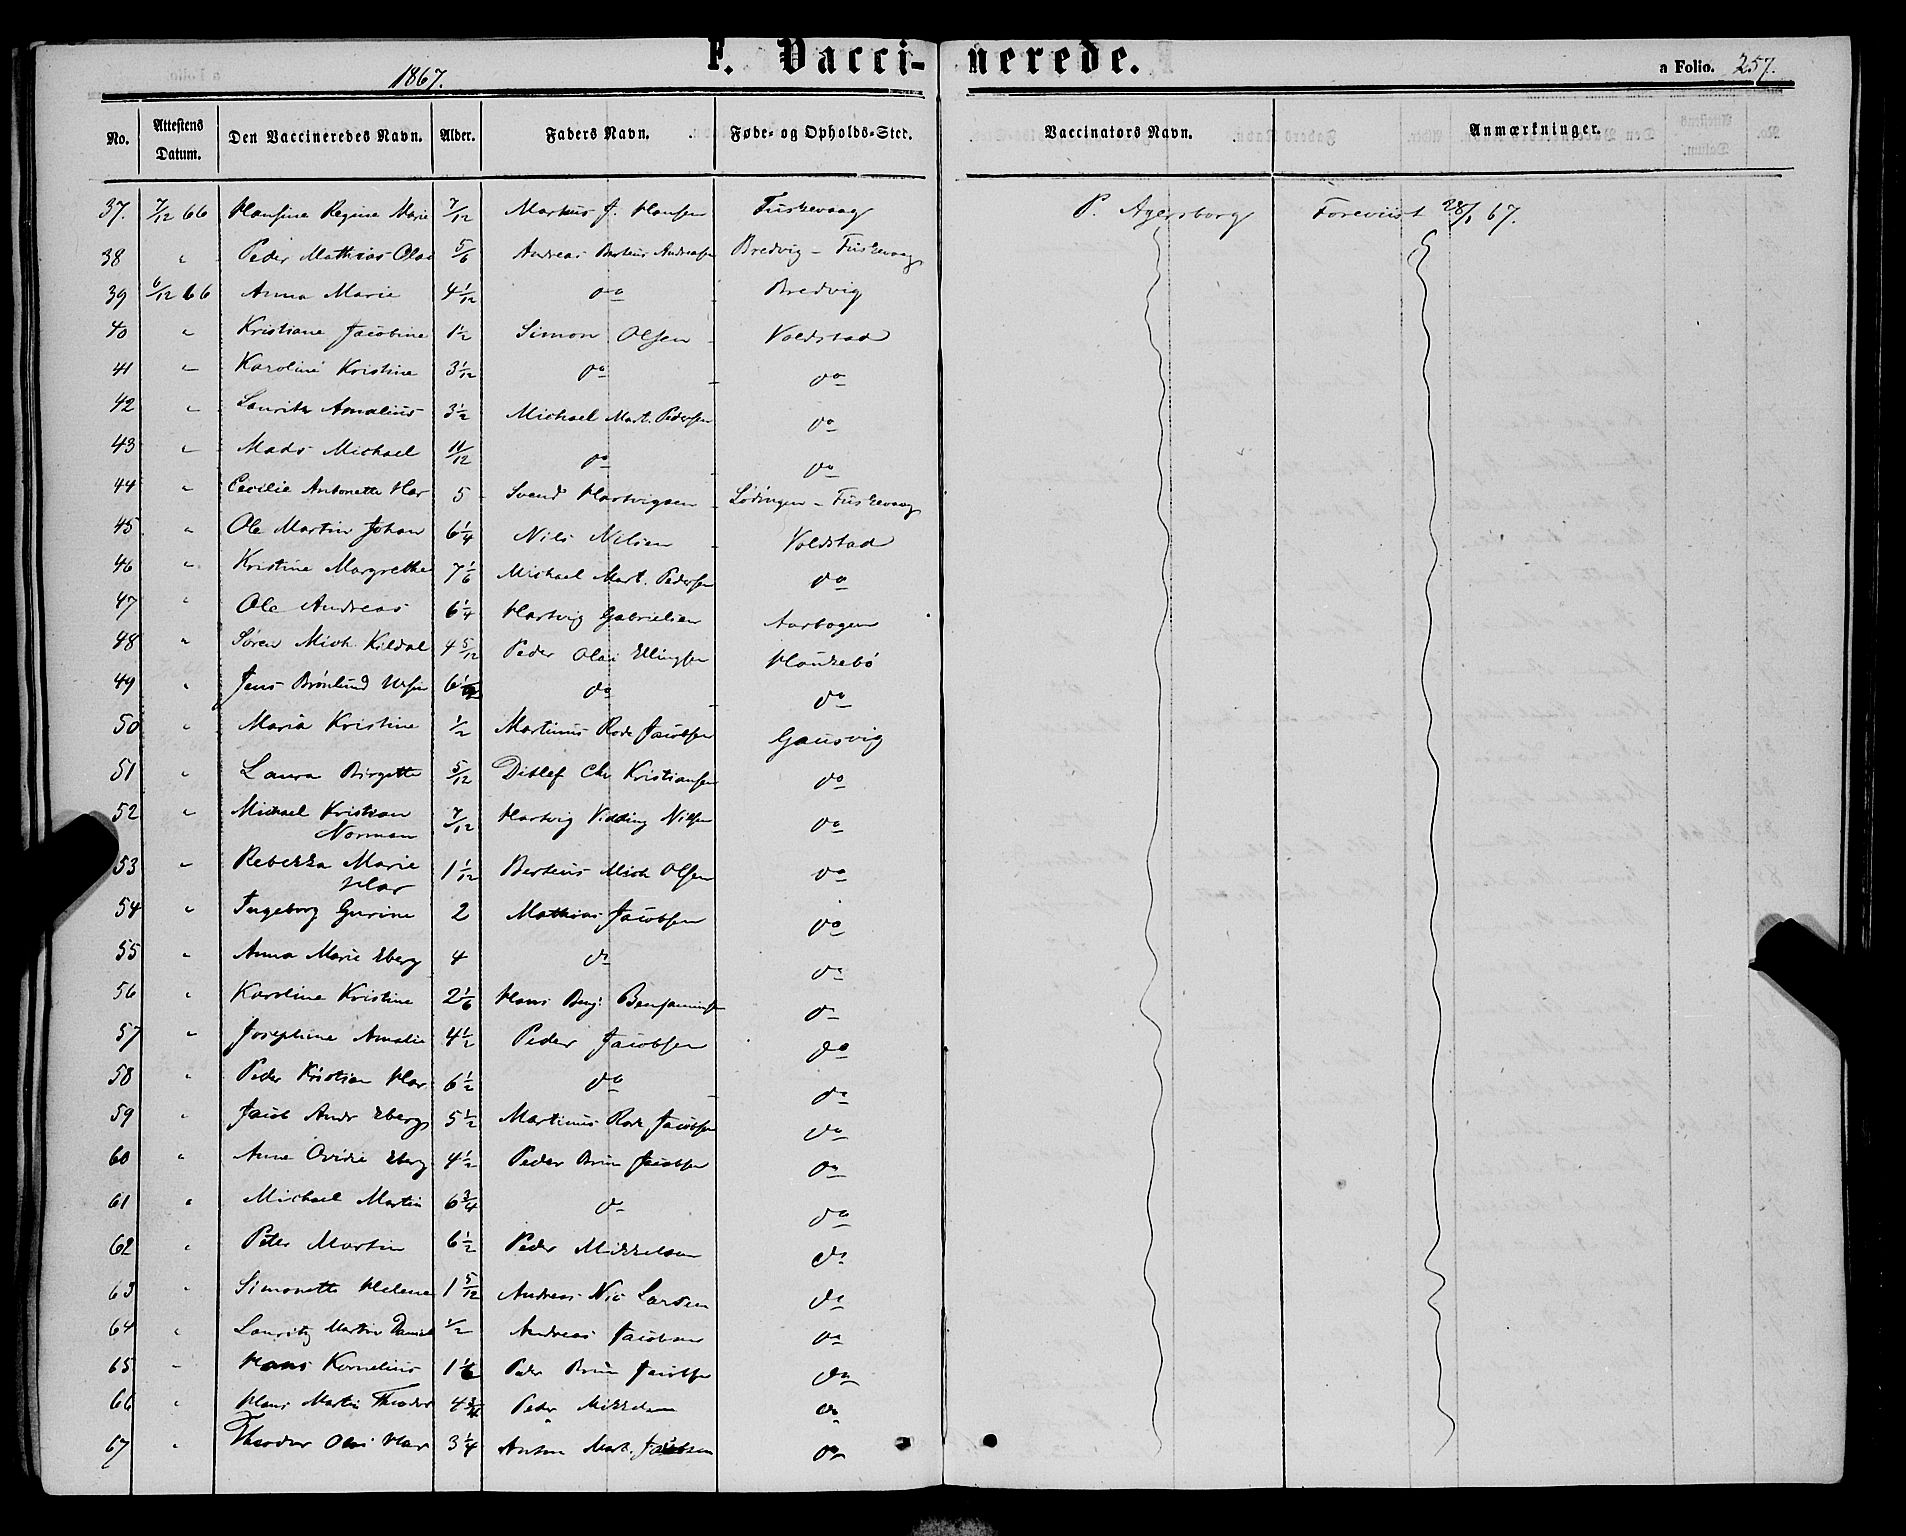 F. Vaccinerede.
1867.
a Folio. 257.
No. Attestens Datum. Den Vaccineredes Navn. Alder. Faders Navn. Føde- og Opholds-Sted. Vaccinators Navn. Anmærkninger.
37. 7/12 66 Hansine Regine Marie 7/12 Markus J. Hansen Fuskevaag P. Agersborg Foreviist 28/1 67.
38 " Peder Mathias Olai 5/6 Andreas Berteus Andreasen Bredvig - Fuskevaag
39 6/12 66 Anna Marie 4 1/12 do Bredvig
40 " Kristiane Jacobine 1 1/2 Simon Olsen Voldstad
41 " Karoline Kristine 3 1/12 do do
42 " Lauritz Amalius 3 1/2 Michael Mart. Pedersen do
43 " Mads Michael 11/12 do do
44 " Cecilie Antonette Har 5 Svend Hartvigsen Lødingen - Fuskevaag
45 " Ole Martin Johan 6 1/4 Nils Nilsen Voldstad
46 " Kristine Margrethe 7 1/6 Michael Mart. Pedersen do
47 " Ole Andreas 6 1/4 Hartvig Gabrielsen Aarbogen
48 " Søren Mich. Kildal 4 5/12 Peder Olai Ellingsen Haukebø
49 " Jens Brønlund 6 do do
50 " Maria Kristine 1/2 Martinus Rode Jacobsen Gausvig
51 " Laura Birgette 5/12 Ditlef Chr Kristiansen do
52 " Michael Kristian Norman 7/12 Hartvig Vidding Nilsen do
53 " Rebekka Marie Har 1 1/12 Berteus Mich Olsen do
54 " Ingeborg Gurine 2 Mathias Jacobsen do
55 " Anna Marie Eberg 4 do do
56 " Karoline Kristine 2 1/6 Hans Benj. Benjaminsen do
57 " Josephine Amalie 4 1/2 Peder Jacobsen do
58 " Peder Kristian Har 6 1/2 do do
59 " Jacob Andr Eberg 5 1/2 Martinus Rode Jacobsen do
60 " Anne Ovidie Eberg 4 1/2 Peder Brun Jacobsen do
61 " Michael Martin 6 3/4 do do
62 " Peter Martin 6 1/2 Peder Mikkelsen do
63 " Simonette Helene 1 5/12 Andreas Nic Larsen do
64 " Lauritz Martin Daniel 1/2 Andreas Jacobsen do
65 " Hans Kornelius 1 1/6 Peder Brun Jacobsen do
66 " Hans Martin Theodor 4 3/4 Peder Mikkelsen do
67 " Theodor Olai Har 3 1/4 Anton Mart. Jacobsen do